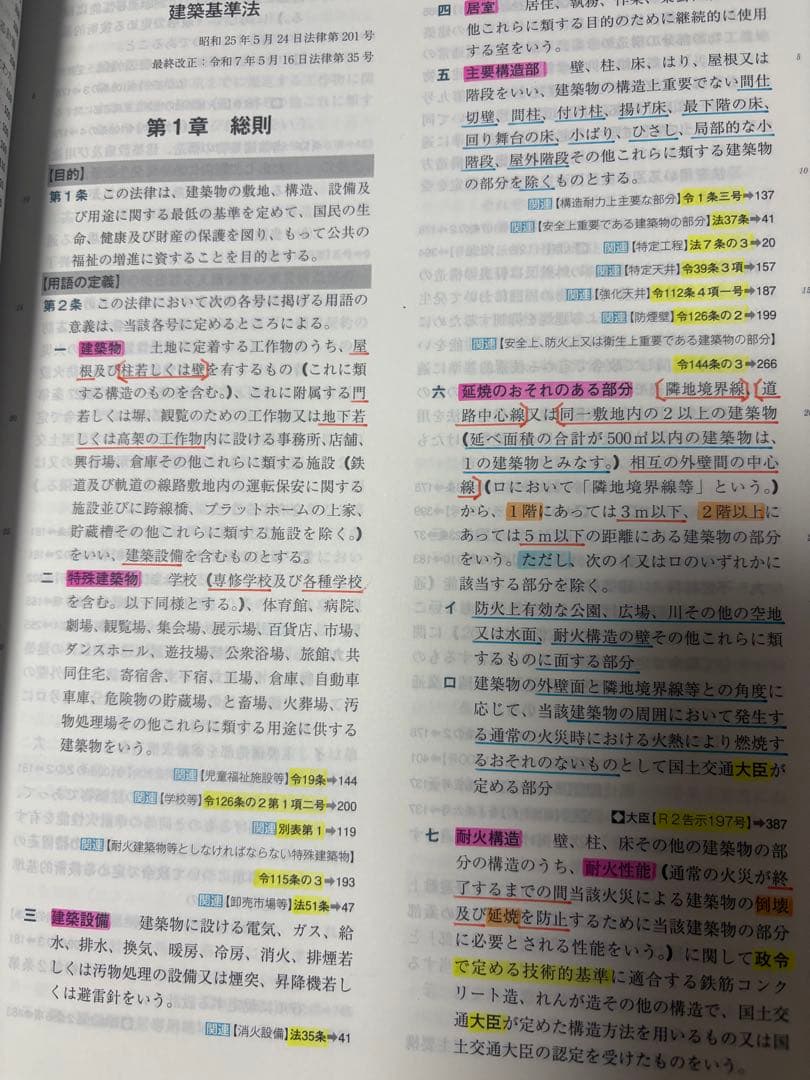 建築基準法
昭和25年5月24日法律第201号
最終改正：令和7年5月16日法律第35号
第1章　総則
【目的】
第1条　この法律は、建築物の敷地、構造、設備及
び用途に関する最低の基準を定めて、国民の生
命、健康及び財産の保護を図り、もって公共の
福祉の増進に資することを目的とする。
【用語の定義】
第2条　この法律において次の各号に掲げる用語の
意義は、当該各号に定めるところによる。
一　建築物　土地に定着する工作物のうち、屋
根及び柱若しくは壁を有するもの（これに類
する構造のものを含む。）、これに附属する門
若しくは塀、観覧のための工作物又は地下若
しくは高架の工作物内に設ける事務所、店舗、
興行場、倉庫その他これらに類する施設（鉄
道及び軌道の線路敷地内の運転保安に関する
施設並びに跨線橋、プラットホームの上家、
貯蔵槽その他これらに類する施設を除く。）
をいい、建築設備を含むものとする。
二　特殊建築物　学校（専修学校及び各種学校
を含む。以下同様とする。）、体育館、病院、
劇場、観覧場、集会場、展示場、百貨店、市場、
ダンスホール、遊技場、公衆浴場、旅館、共
同住宅、寄宿舎、下宿、工場、倉庫、自動車
車庫、危険物の貯蔵場、と畜場、火葬場、汚
物処理場その他これらに類する用途に供する
建築物をいう。
関連【児童福祉施設等】令19条➡144
関連【学校等】令126条の2第1項二号➡200
関連 別表第1➡119
関連【耐火建築物等としなければならない特殊建築物】
令115条の3➡193
関連【卸売市場等】法51条➡47
三　建築設備　建築物に設ける電気、ガス、給
水、排水、換気、暖房、冷房、消火、排煙若
しくは汚物処理の設備又は煙突、昇降機若し
くは避雷針をいう。
関連【消火設備】法35条➡41
四　居室　居住、執務、作業、
他これらに類する目的のために継続的に使用
する室をいう。
五　主要構造部　壁、柱、床、はり、屋根又は
階段をいい、建築物の構造上重要でない間仕
切壁、間柱、付け柱、揚げ床、最下階の床、
回り舞台の床、小ばり、ひさし、局部的な小
階段、屋外階段その他これらに類する建築物
の部分を除くものとする。
関連【構造耐力上主要な部分】令1条三号➡137
関連【安全上重要である建築物の部分】法37条➡41
関連【特定工程】法7条の3➡20
関連【特定天井】令39条3項➡157
関連【強化天井】令112条4項一号➡187
関連【防煙壁】令126条の2➡199
関連【安全上、防火上又は衛生上重要である建築物の部分】
令144条の3➡266
六　延焼のおそれのある部分　隣地境界線、道
路中心線又は同一敷地内の2以上の建築物
（延べ面積の合計が500㎡以内の建築物は、
1の建築物とみなす。）相互の外壁間の中心
線（ロにおいて「隣地境界線等」という。）
から、1階にあっては3m以下、2階以上に
あっては5m以下の距離にある建築物の部分
をいう。ただし、次のイ又はロのいずれかに
該当する部分を除く。
イ　防火上有効な公園、広場、川その他の空地
又は水面、耐火構造の壁その他これらに類
するものに面する部分
ロ　建築物の外壁面と隣地境界線等との角度に
応じて、当該建築物の周囲において発生す
る通常の火災時における火熱により燃焼す
るおそれのないものとして国土交通大臣が
定める部分
◆大臣【R2告示197号】➡387
七　耐火構造　壁、柱、床その他の建築物の部
分の構造のうち、耐火性能（通常の火災が終
了するまでの間当該火災による建築物の倒壊
及び延焼を防止するために当該建築物の部分
に必要とされる性能をいう。）に関して政令
で定める技術的基準に適合する鉄筋コンク
リート造、れんが造その他の構造で、国土交
通大臣が定めた構造方法を用いるもの又は国
土交通大臣の認定を受けたものをいう。